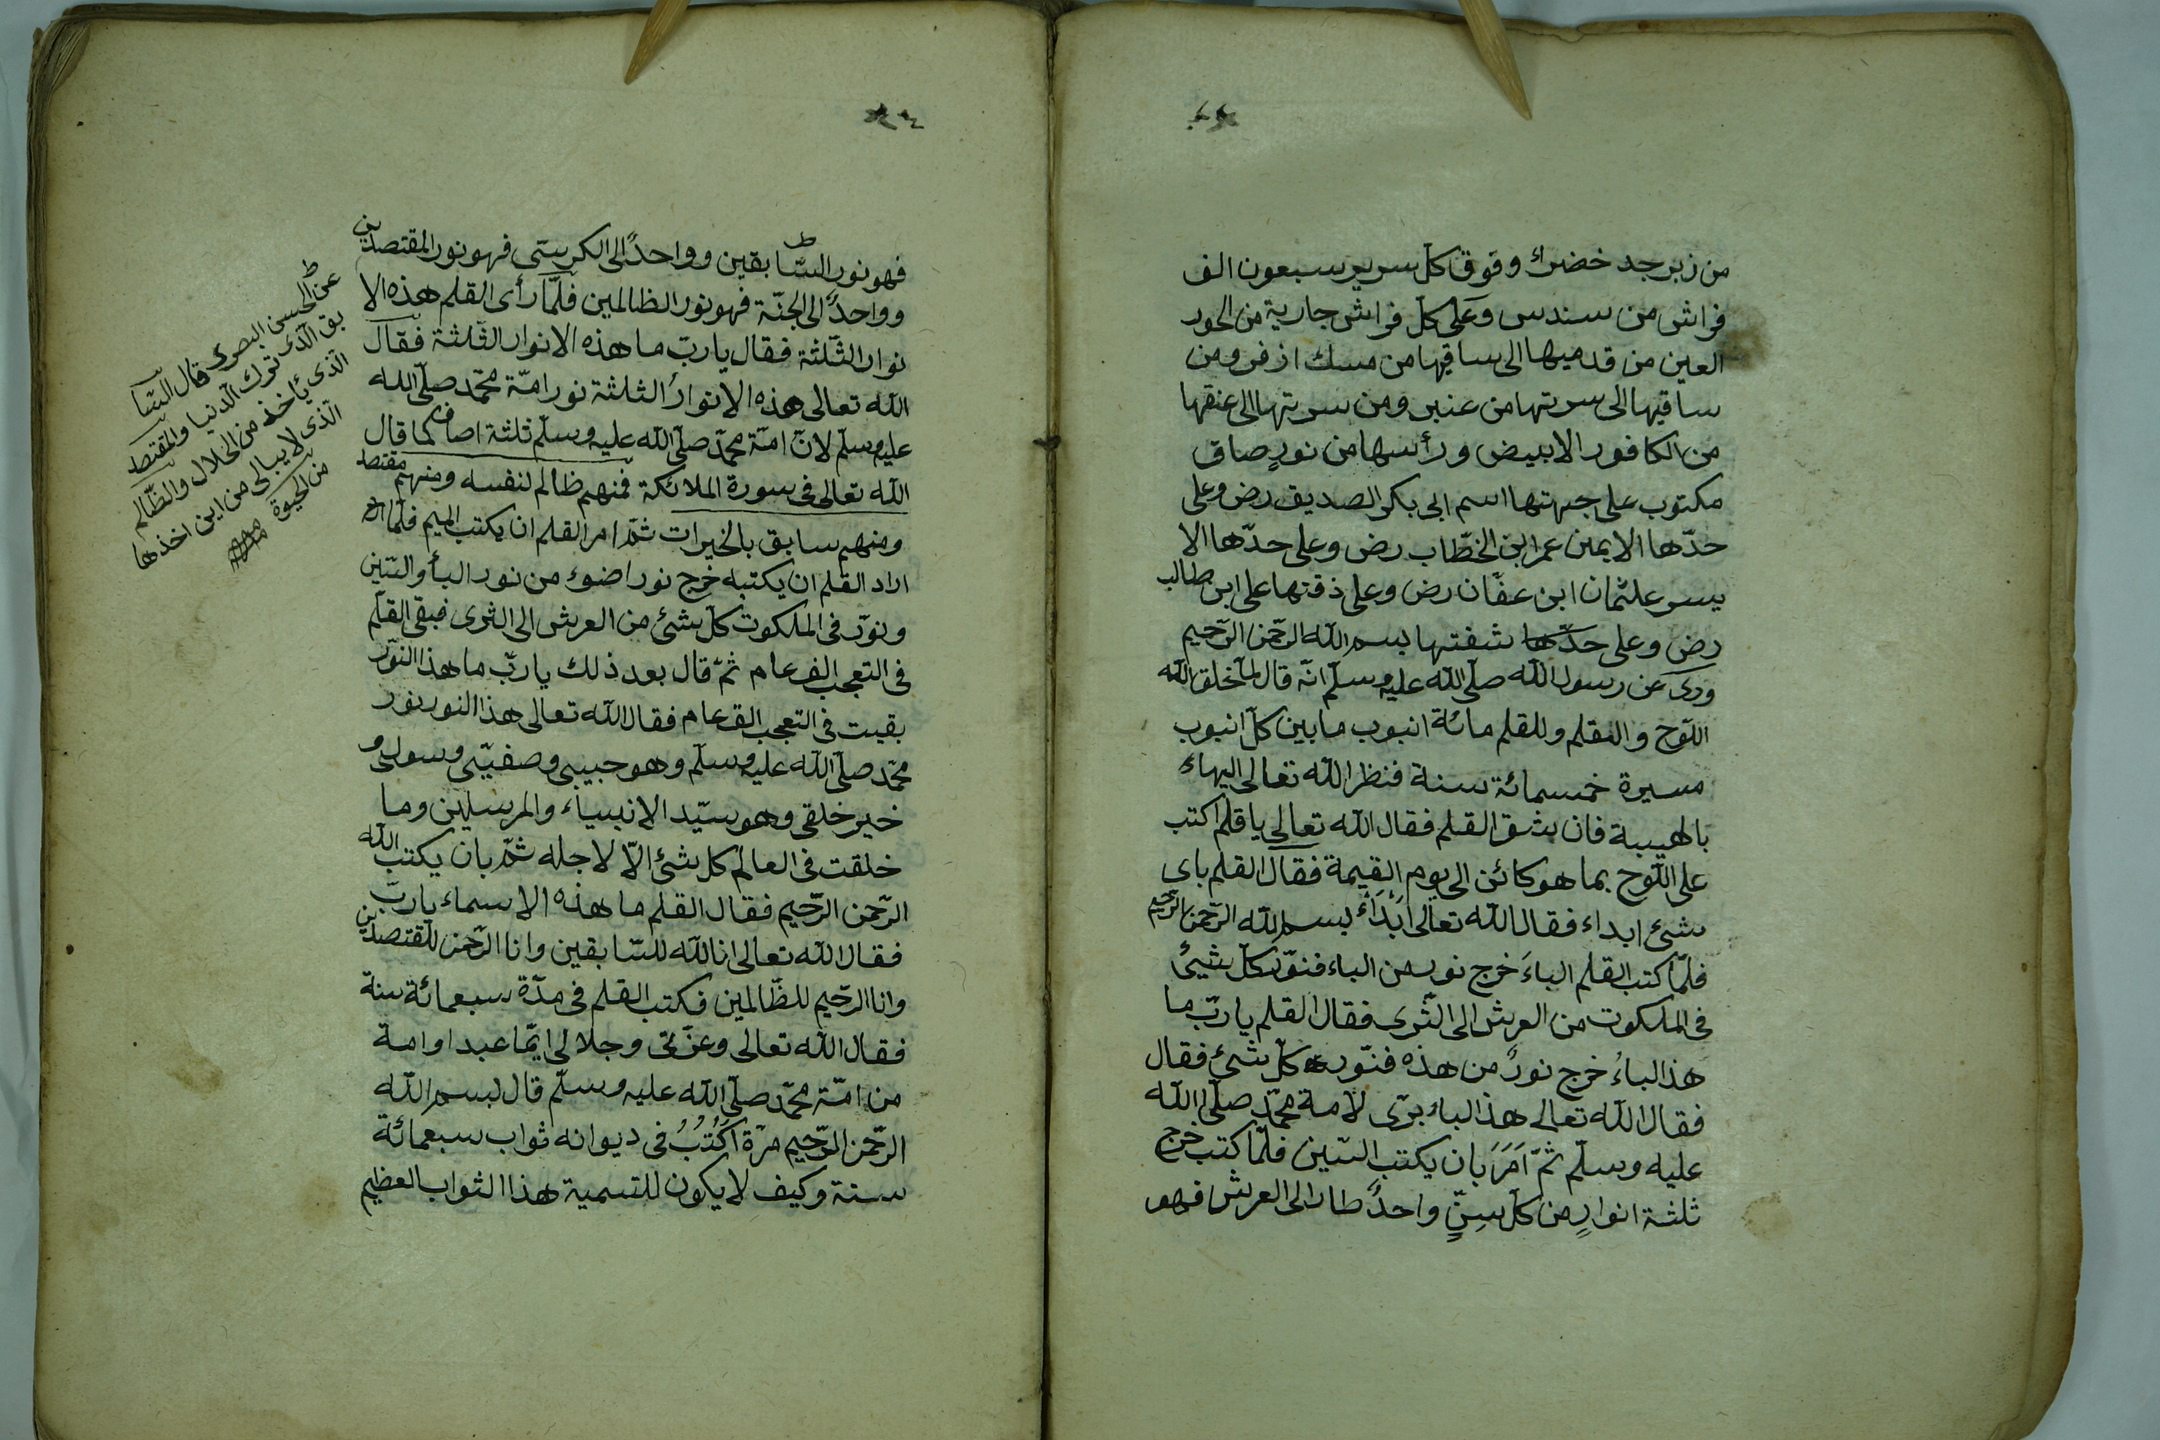 من زبرجد خضراء وفوق كل سرير سبعون الف
فراش من سندس وعلى كل فراش جارية من الحور
العين من قدميها الى ساقيها من مسك اذفر ومن
ساقيها الى سرتها من عنبر ومن سرتها الى عنقها
من الكافور الابيض ورأسها من نورٍ صاف
مكتوب على جبهتها اسم ابى بكر الصديق رض وعلى
خدّها الايمن عمر ابن الخطّاب رض وعلى خدّها الا
يسر علثمان ابن عفّان رض وعلى ذقنها على ابن طالب
رض وعلى شفتها بسم الله الرّحمن الرّحيم
وروى عن رسول الله صلّى الله عليه وسلّم انّه قال لمّا خلق الله
اللّوح والقلم وللقلم مائة انبوب ما بين كلّ انبوب
مسيرة خمسمائة سنة فنظر الله تعالى اليهاء
بالهيبة فان بشق القلم فقال الله تعالى يا قلم اكتب
على اللّوح بما هو كائن الى يوم القيمة فقال القلم باى
شئ ابداء فقال الله تعالى ابْدَاْء بسم الله الرّحمن الرّحيم
فلمّا كتب القلم الباءَ خرج نور من الباء فنوّر كلّ شيئ
فى الملكوت من العرش الى الثّرى فقال القلم يا ربّ ما
هذا الباءُ خرج نورٌ من هذه فنّور كلّ شئ فقال
فقال الله تعالى هذا الباء برّى لامة محمّد صلّى الله
عليه وسلّم ثمّ اَمَرَ بان يكتب السّين فلمّا كتب خرج
ثلثة انوارٍ من كلّ سِنٍّ واحدٌ طار الى العرش فهو
فهو نور السّابقين وواحدٌ الى الكرسّى فهو نور المقتصدين
وواحدٌ الى الجنّة فهو نور الظالمين فلمّا رأى القلم هذه الا
نوار الثّلثة فقال يا ربّ ما هذه الانوار الثّلثة فقال
الله تعالى هذه الانوارُ الثلثة نور امّة محمّد صلّى الله
عليه وسلّم لانّ امّة محمّد صلّى الله عليه وسلّم ثلثة اصناف كما قال
الله تعالى فى سورة الملائكة فمنهم ظالم لنفسه ومنهم مقتصد
ومنهم سابق بالخيرات ثمّ امر القلم ان يكتب الميم فلمّا
اراد القلم ان يكتبه خرج نور اضوء من نور الباء والسّين
ونوّر فى الملكوت كلّ شئ من العرش الى الثرى فبقى القلم
فى التعجب الف عام ثمّ قال بعد ذلك يا ربّ ما هذا النّور
بقيت فى التعجب الف عام فقال الله تعالى هذا النور نور
محمّد صلّى الله عليه وسلّم وهو حبيبى وصفيّى وسولى و
خير خلقى وهو سيّد الانبياء والمرسلين وما
خلقت فى العالم كل شئ الّا لاجله ثمّ بان يكتب الله
الرّحمن الرّحيم فقال القلم ما هذه الاسماء يا ربّ
فقال الله تعالى انا الله للسّابقين وانا الرّحمن للمقتصدين
وانا الرّحيم للظّالمين فكتب القلم فى مدّة سبعمائة سنة
فقال الله تعالى وعزّتى وجلالى ايّما عبد او امة
من امّة محمّد صلّى الله عليه وسلّم قال بسم الله
الرّحمن الرّحيم مرّة اَكْتُبُ فى ديوانه ثواب سبعمائة
سنة وكيف لا يكون للتسمية هذا الثواب العظيم
عن الحسن البصرى قال السّا
بق الّذى ترك الدنيا والمقتصد
الّذى يأخذ من الحلال والظّالم
الّذى لا يبالى من اين اخذها
من الحيوة